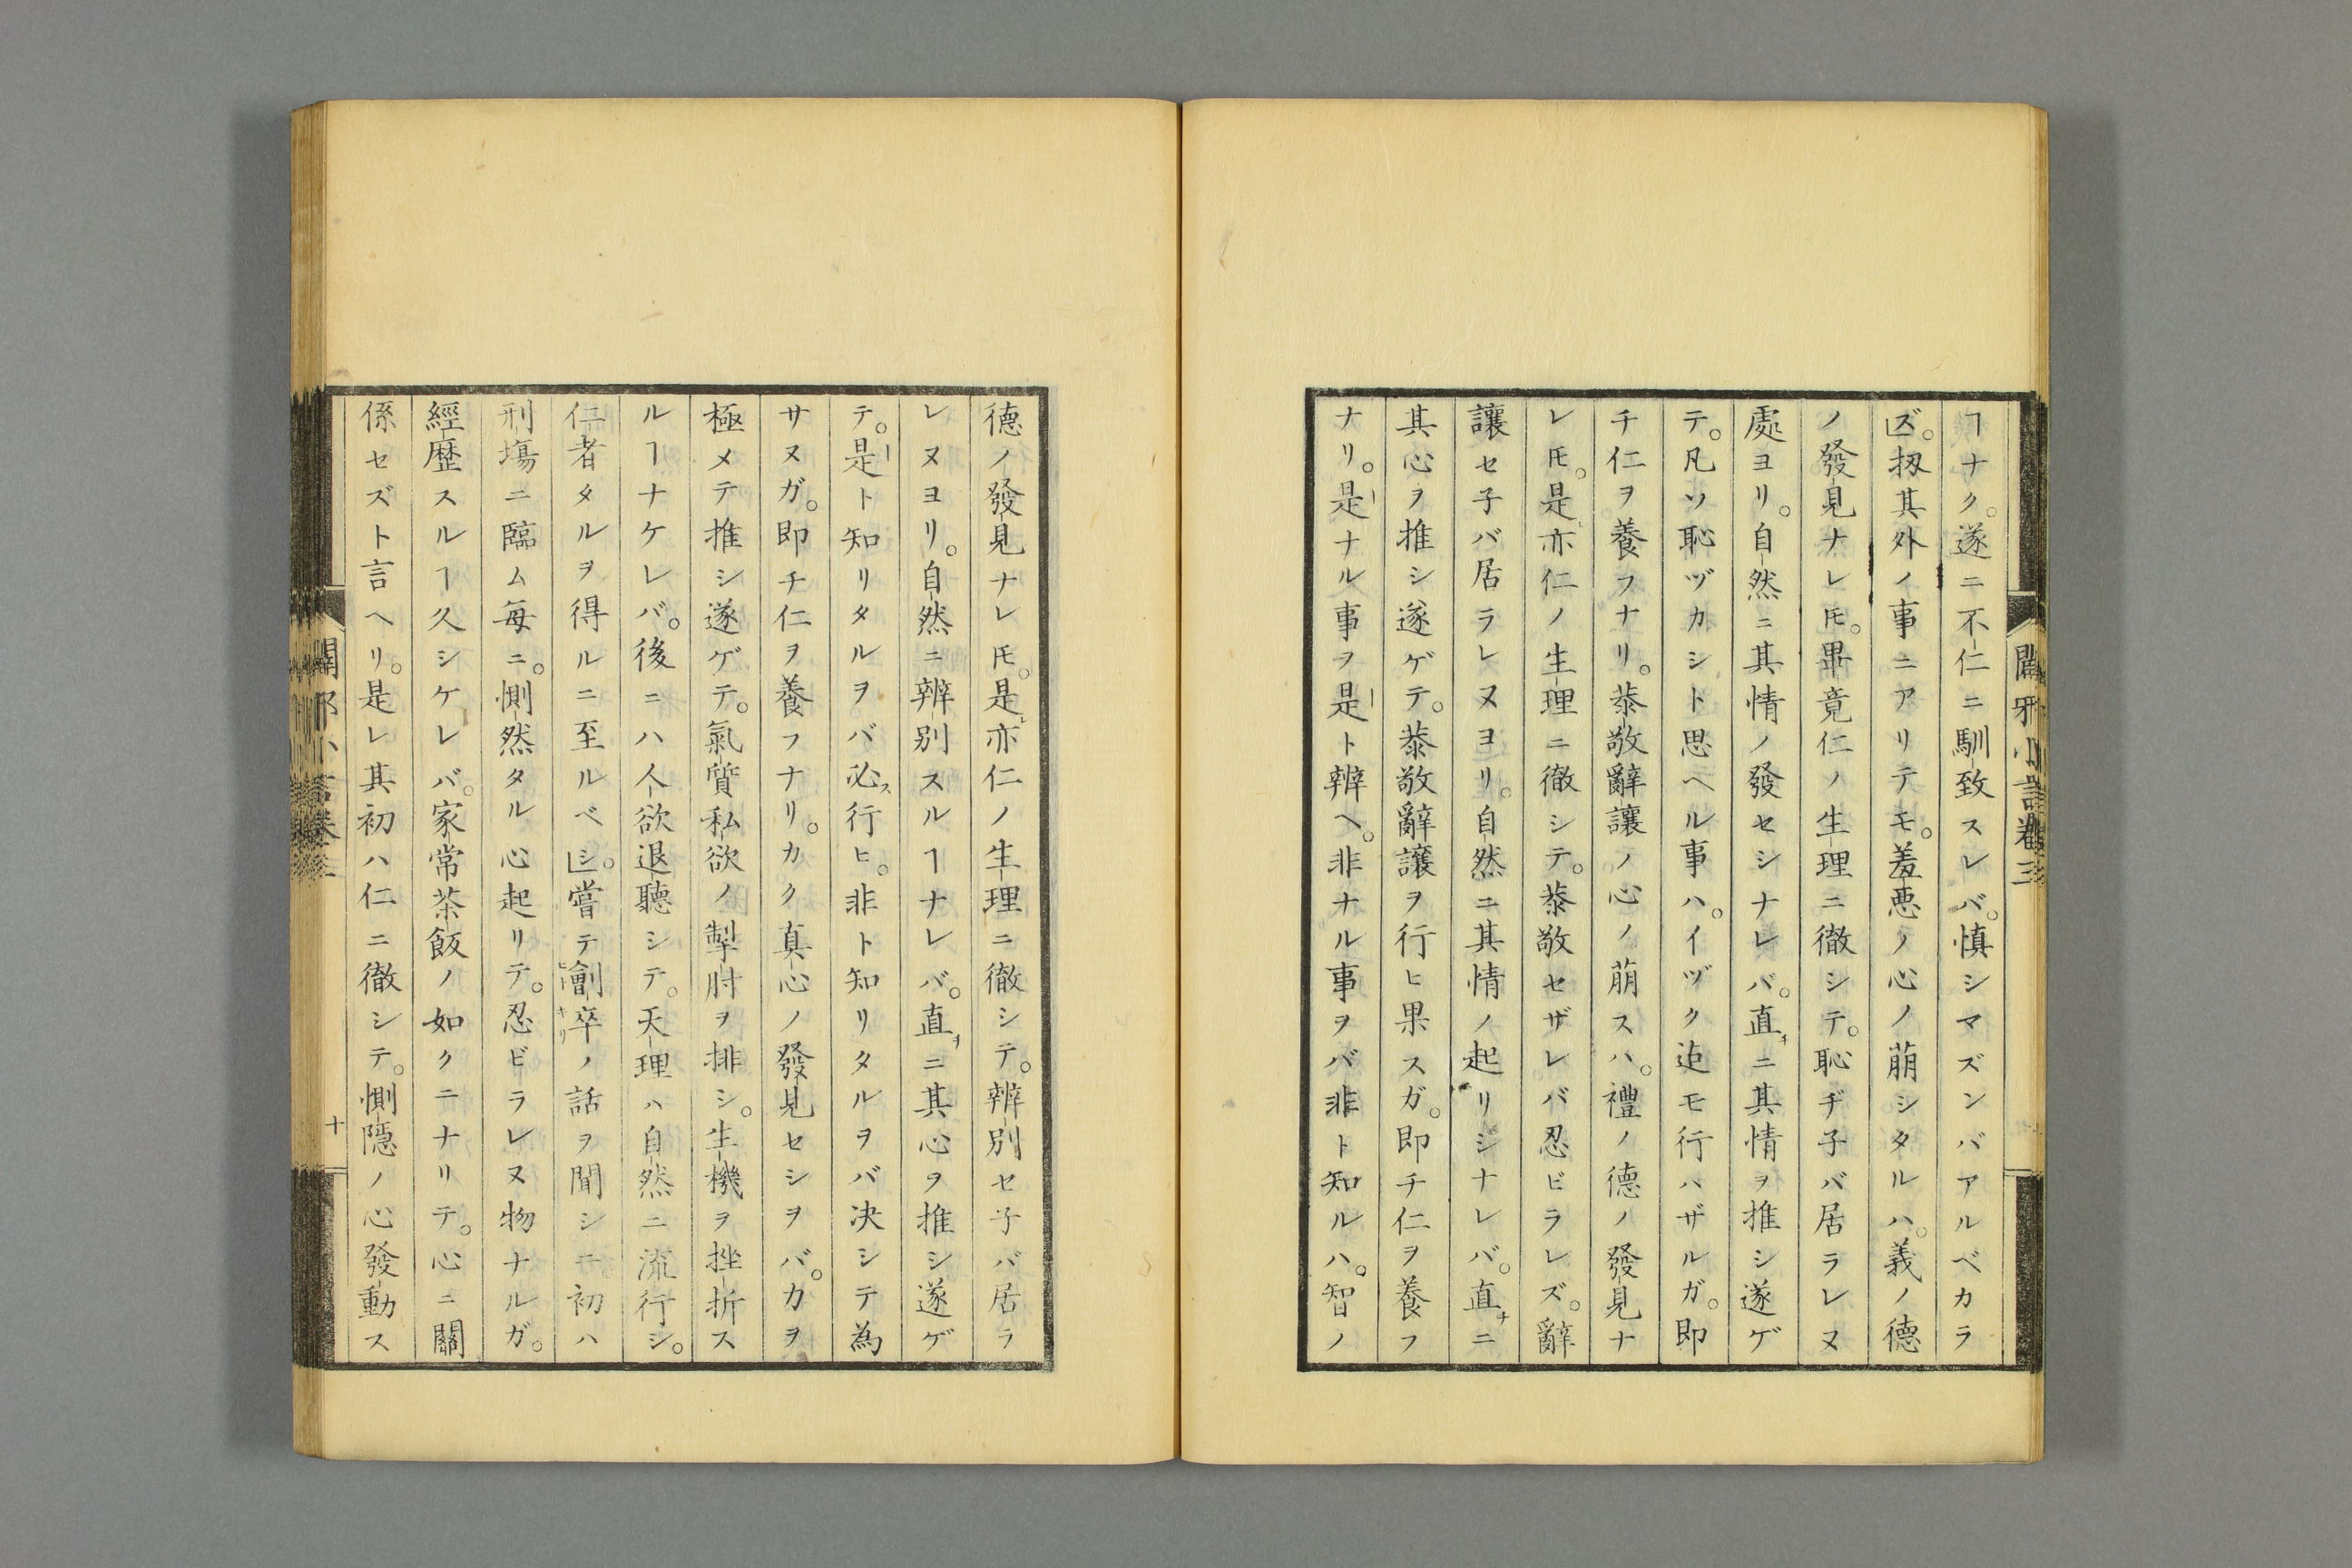 ヿナク。遂ニ不仁ニ馴致スレバ。慎シマズンバアルベカラ
ズ。扨其外ノ事ニアリテモ。羞悪ノ心ノ萠シタルハ。義ノ德
ノ發見ナレ𪜈。畢竟仁ノ生理ニ徹シテ。恥ヂ子バ居ラレヌ
處ヨリ。自然ニ其情ノ發セシナレバ。直チニ其情ヲ推シ遂ゲ
テ。凡ソ恥ヅカシト思ヘル事ハ。イヅク迠モ行ハザルガ。即
チ仁ヲ養フナリ。㳟敬辭讓ノ心ノ萠スハ。禮ノ德ノ發見ナ
レ𪜈。是亦仁ノ生理ニ徹シテ。㳟敬セザレバ忍ビラレズ。辭
讓セ子バ居ラレヌヨリ。自然ニ其情ノ起リシナレバ。直チニ
其心ヲ推シ遂ゲテ。㳟敬辭讓ヲ行ヒ果スガ。即チ仁ヲ養フ
ナリ。是ナル事ヲ是ト辨ヘ。非ナル事ヲバ非ト知ルハ。智ノ
闢邪小言卷三
德ノ發見ナレ𪜈。是亦仁ノ生理ニ徹シテ。辨別セ子バ居ラ
レヌヨリ。自然ニ辨別スルヿナレバ。直チニ其心ヲ推シ遂ゲ
テ。是ト知リタルヲバ必ス行ヒ。非ト知リタルヲバ决シテ為
サヌガ。即チ仁ヲ養フナリ。カク真心ノ發見セシヲバ。力ヲ
極メテ推シ遂ゲテ。氣質私欲ノ掣肘ヲ排シ。生機ヲ挫折ス
ルヿナケレバ。後ニハ人欲退聽シテ。天理ハ自然ニ流行シ。
仁者タルヲ得ルニ至ルベシ。嘗テ劊卒ノ話ヲ聞シニ。初ハ
刑塲ニ臨ム毎ニ。惻然タル心起リテ。忍ビラレヌ物ナルガ。
經歷スルヿ久シケレバ。家常茶飯ノ如クニナリテ。心ニ關
係セズト言ヘリ。是レ其初ハ仁ニ徹シテ。惻隱ノ心發動ス
闢邪小言卷三
十